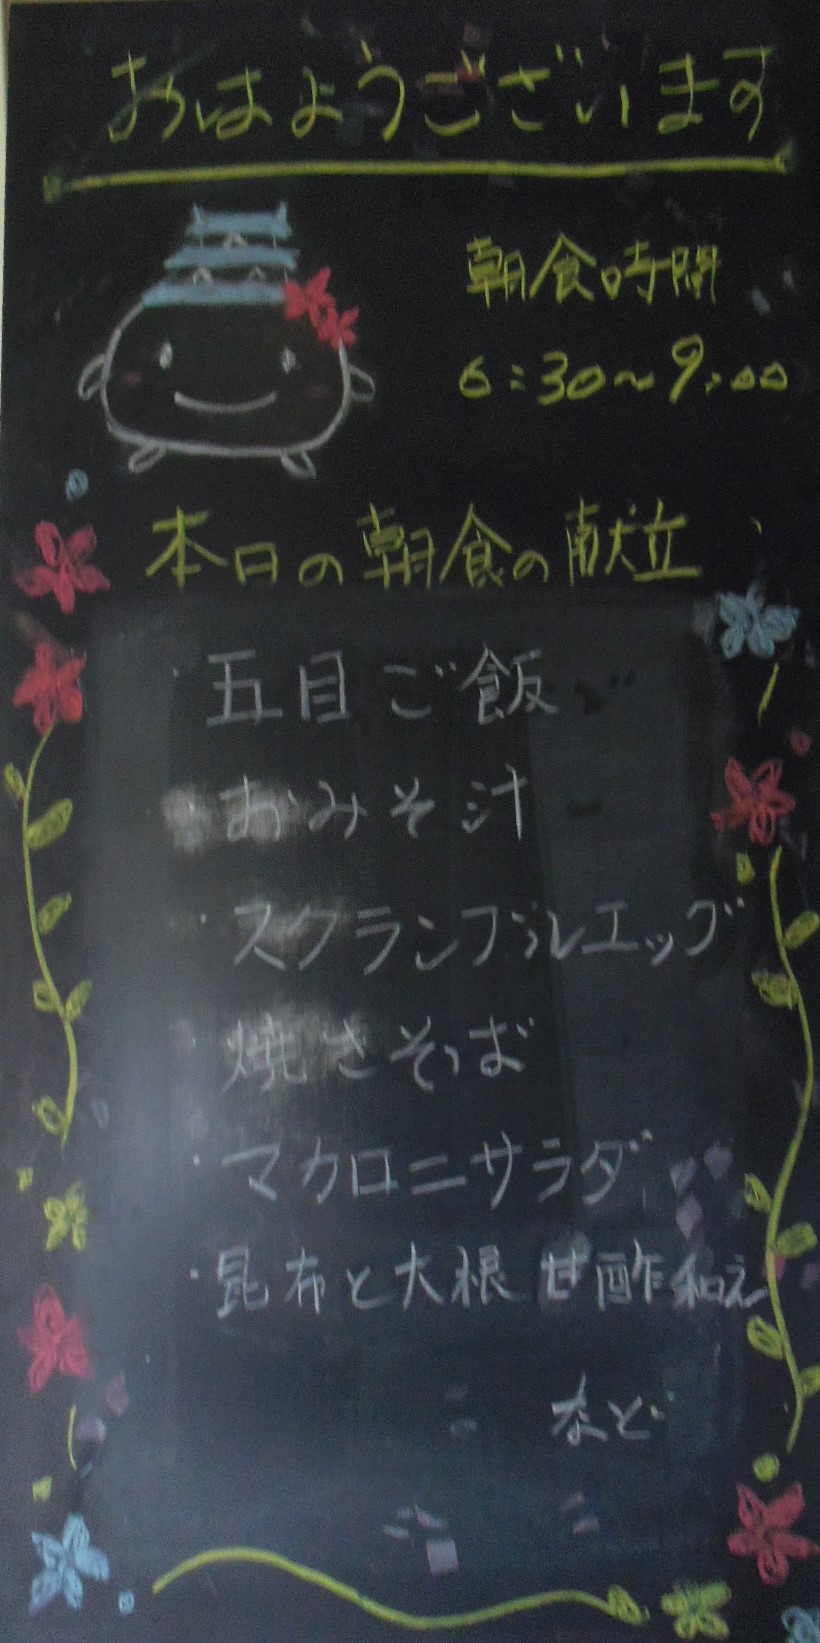 おはようございます
朝食時間
6:30〜9:00
本日の朝食の献立
・五目ご飯
・おみそ汁
・スクランブルエッグ
・焼きそば
・マカロニサラダ
・昆布と大根 甘酢和え
など